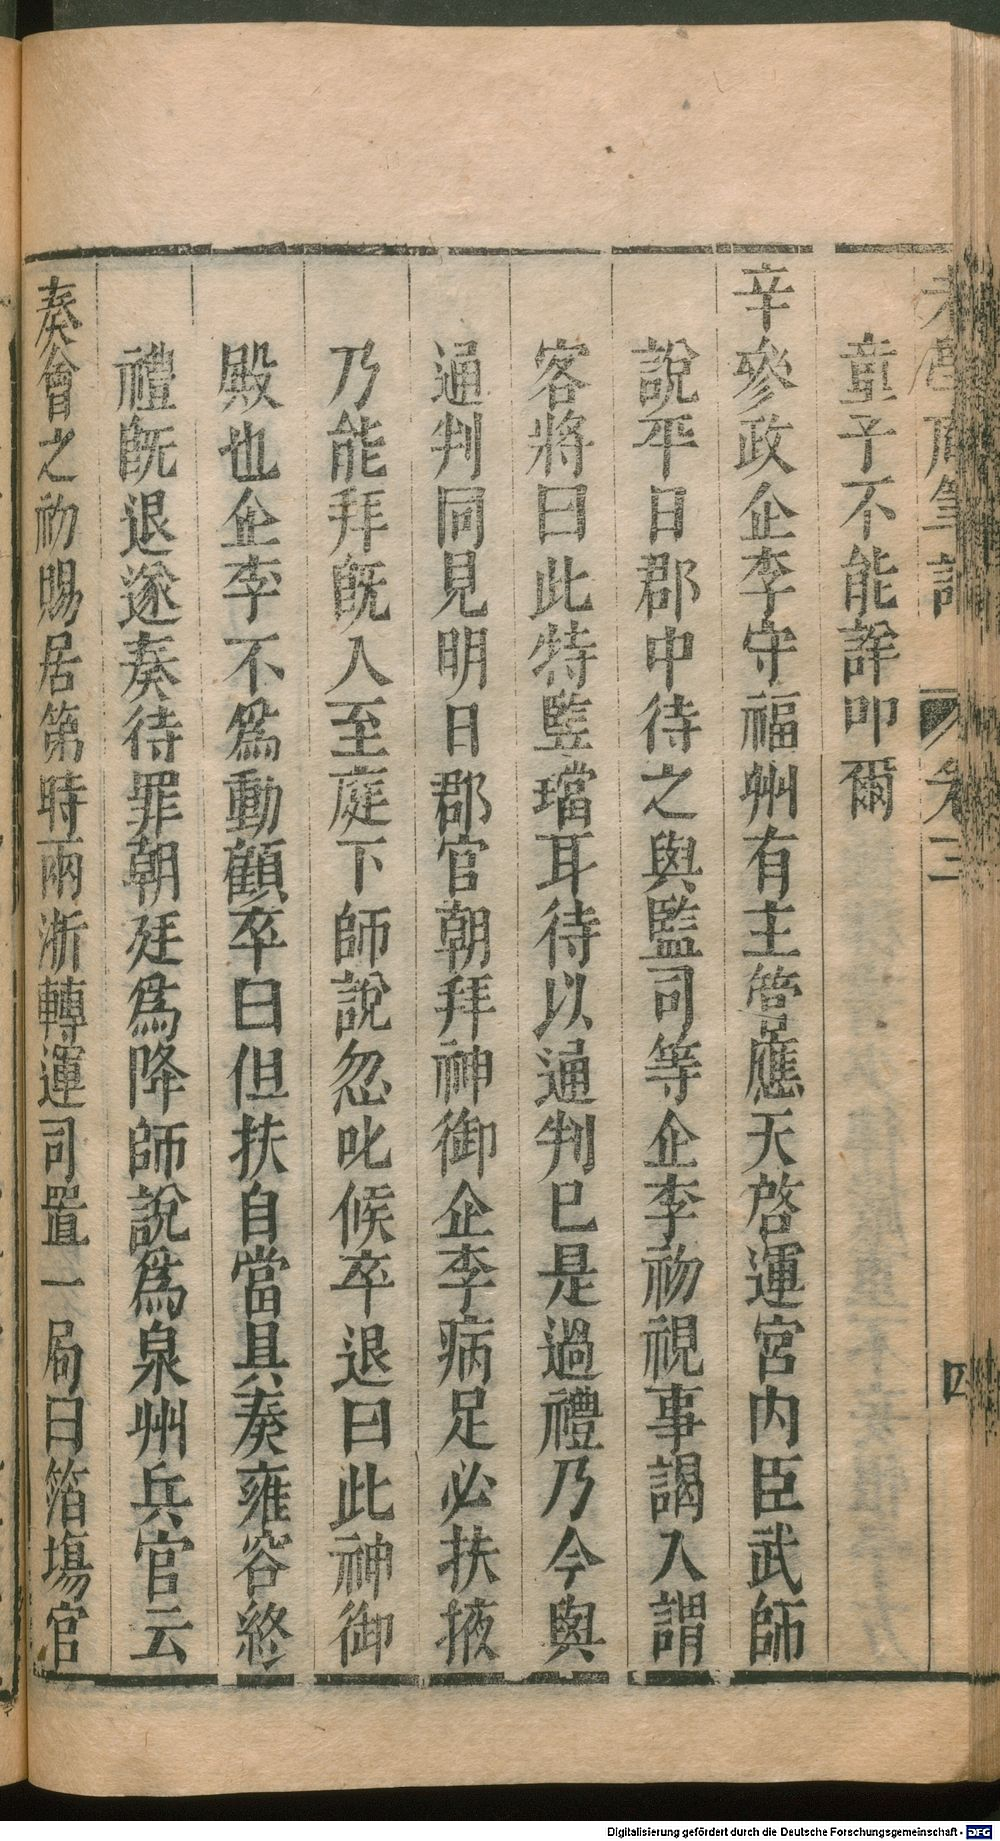 老學庵筆記 卷三 四
童子不能詳叩爾
辛參政企李守福州有主管應天啓運宮内臣武師
說平日郡中待之與監司等企李初視事謁入謂
客將曰此特監璫耳待以通判巳是過禮乃今與
通判同見明日郡官朝拜神御企李病足必扶掖
乃能拜旣入至庭下師說忽叱候卒退曰此神御
殿也企李不爲動顧卒曰但扶自當具奏雍容終
禮旣退遂奏待罪朝廷爲降師說爲泉州兵官云
秦會之初賜居第時兩浙轉運司置一局曰箔塲官
Digitalisierung gefördert durch die Deutsche Forschungsgemeinschaft - DFG